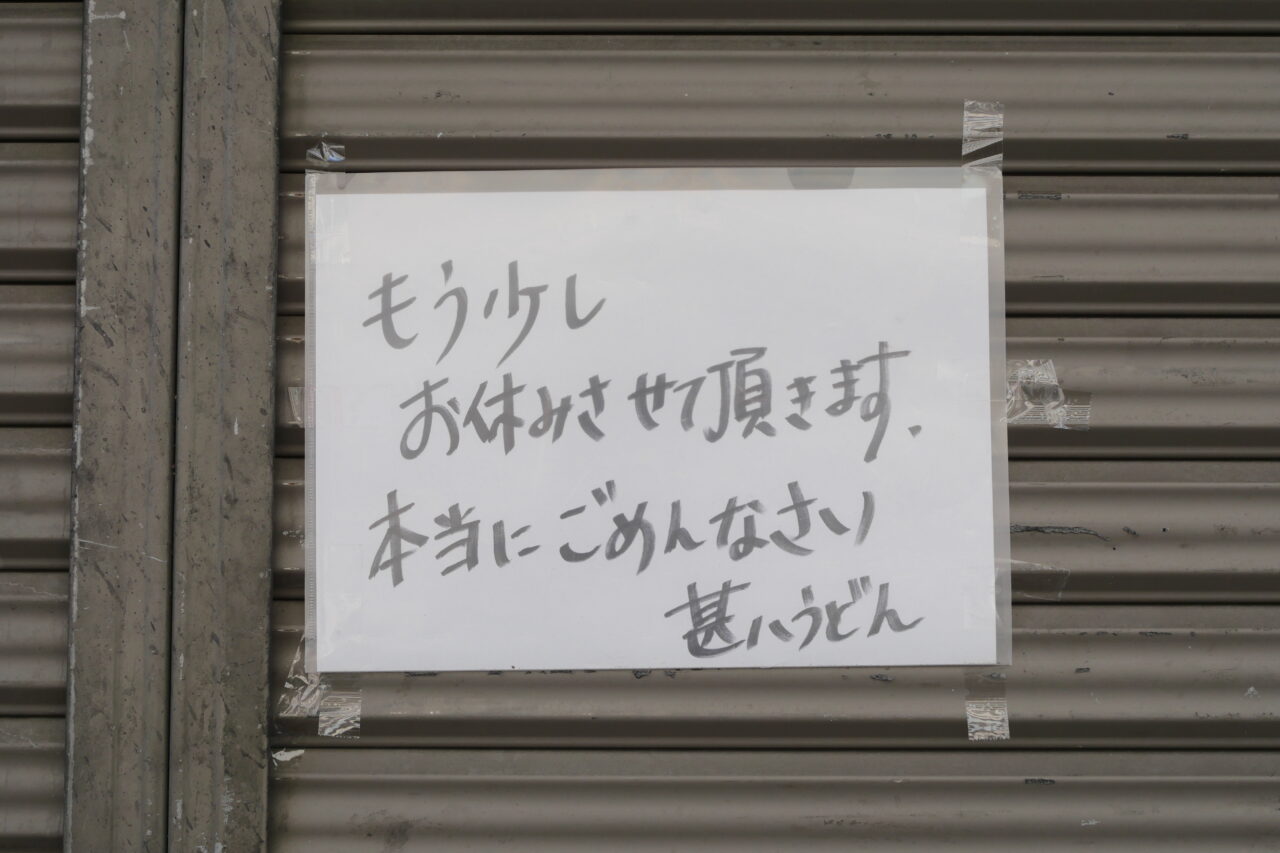 もう少し
お休みさせて頂きます.
本当にごめんなさい
甚八うどん